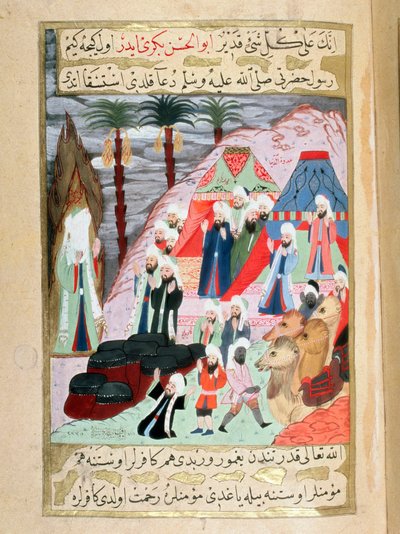 انك على كل شئ قدير ابو الحسن بكرى ايدر اول كيجه كيم
رسول حضرتى صلى الله عليه وسلم دعا قلدى
الله تعالى قدرتندن يغمور ويردى هم كافرلر اوستنه هم
مؤمنلر اوستنه بيله ياغدى مؤمنلره رحمت اولدى كافرلره